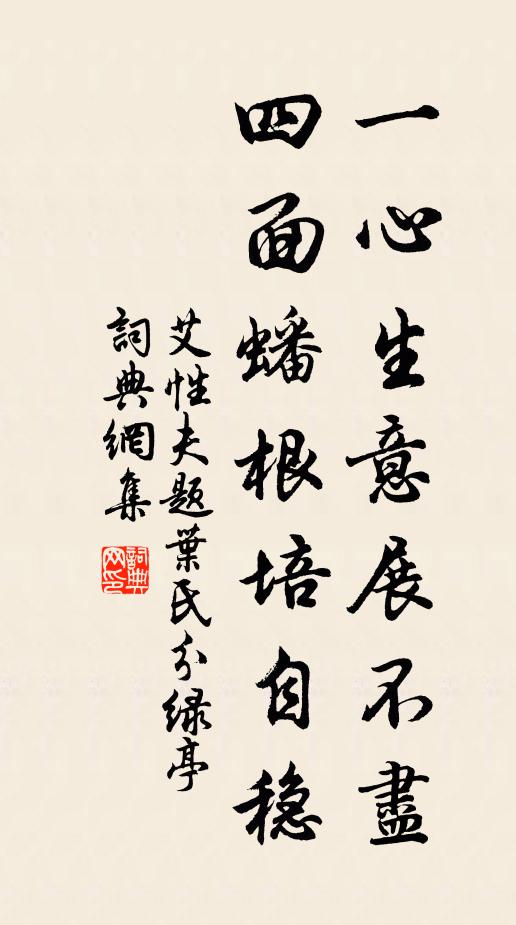 一心生意展不盡
四面蟠根培自穏
艾性夫題葉氏分緑亭
詞典網集
詞典网印